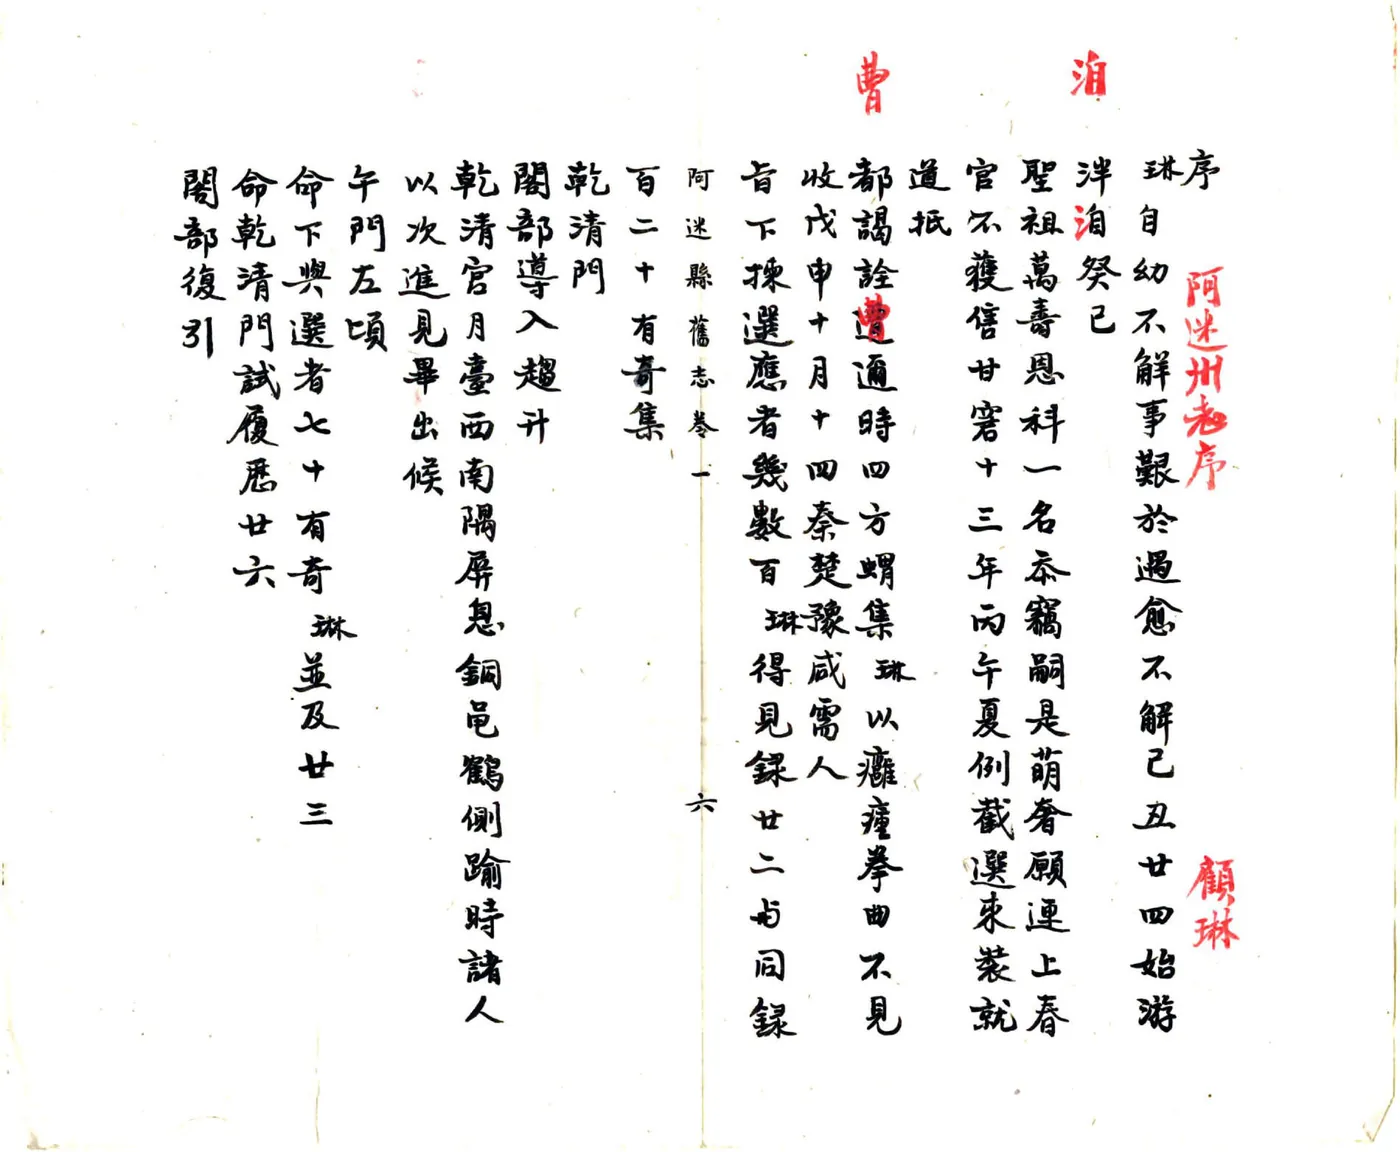 洎
曹
序 阿迷州志序 顧琳
琳自幼不解事艱於遇愈不解己丑廿四始游
泮洎癸巳
聖祖萬壽恩科一名忝竊嗣是萌奢願連上春
官不獲信廿窘十三年丙午夏例截選束裝就
道抵
都謁詮曹邇時四方蝟集琳以癰瘇拳曲不見
收戊申十月十四秦楚豫咸需人
旨下揀選應者幾數百琳得見録廿二与同録
阿迷縣舊志卷一 六
百二十有奇集
乾清門
閣部導入趨升
乾清宮月臺西南隅屏息銅鶴側踰時諸人
以次進見畢出候
午門左頃
命下與選者七十有奇琳並及廿三
命乾清門試履歷廿六
閣部復引